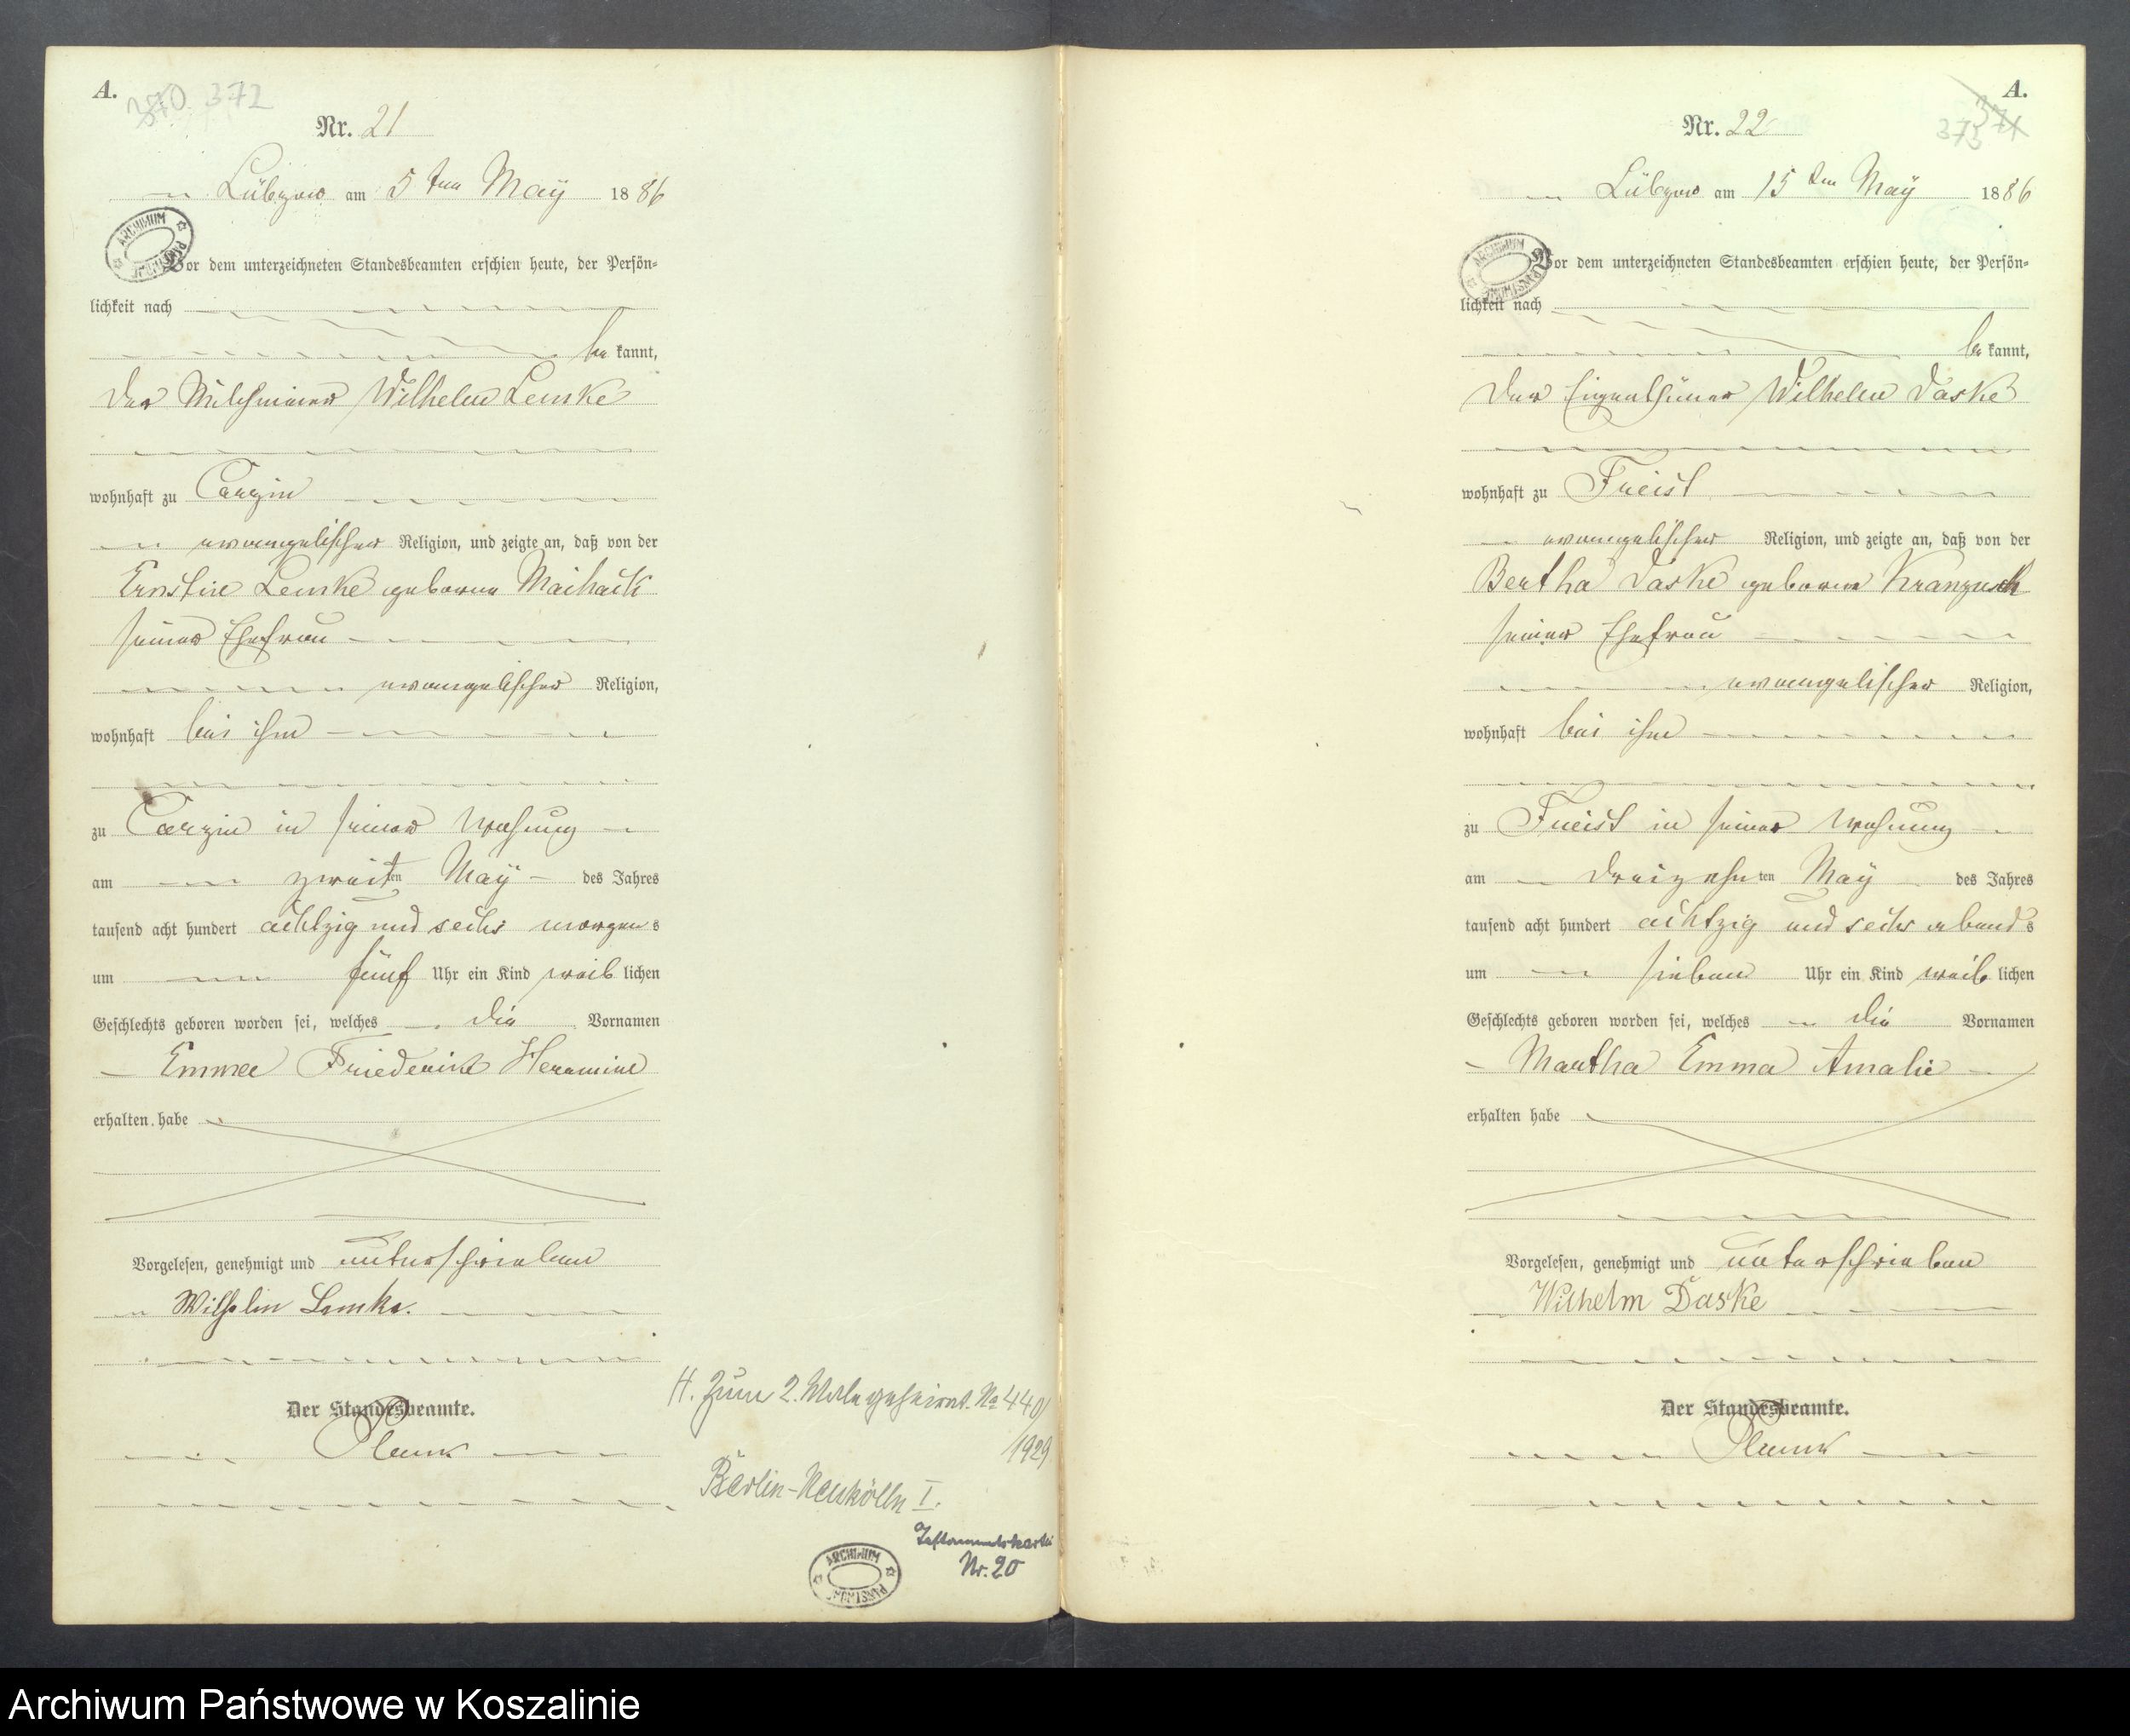 A.
370 372
Nr. 21
Lübzow am 5ten Maÿ 1886
ARCHIWUM PAŃSTWOWE
Vor dem unterzeichneten Standesbeamten erschien heute, der Persön-
lichkeit nach
be kannt,
der Wilhelm Lemke
wohnhaft zu Carzin
evangelischer Religion, und zeigte an, daß von der
Ernstine Lemke geborene
seiner Ehefrau
evangelischer Religion,
wohnhaft bei ihm
zu Carzin in seiner Wohnung
am zweiten Maÿ des Jahres
tausend acht hundert achtzig und sechs morgens
um fünf Uhr ein Kind weiblichen
Geschlechts geboren worden sei, welches die Vornamen
Emma Friederike Hermine
erhalten habe
Vorgelesen, genehmigt und unterschrieben
Wilhelm Lemke.
Der Standesbeamte.
H. Zum 2. Male geheirat. No 440/
1929
Berlin-Neukölln I.
Testamentskartei
Nr. 20
ARCHIWUM PAŃSTWOWE
A.
371
373
Nr. 22
Lübzow am 15ten Maÿ 1886
ARCHIWUM PAŃSTWOWE
Vor dem unterzeichneten Standesbeamten erschien heute, der Persön-
lichkeit nach
be kannt,
der Eigenthümer Wilhelm Daske
wohnhaft zu Freist
evangelischer Religion, und zeigte an, daß von der
Bertha Daske geborene
seiner Ehefrau
evangelischer Religion,
wohnhaft bei ihm
zu Freist in seiner Wohnung
am dreizehnten Maÿ des Jahres
tausend acht hundert achtzig und sechs abends
um sieben Uhr ein Kind weiblichen
Geschlechts geboren worden sei, welches die Vornamen
Martha Emma Amalie
erhalten habe
Vorgelesen, genehmigt und unterschrieben
Wilhelm Daske
Der Standesbeamte.
Archiwum Państwowe w Koszalinie